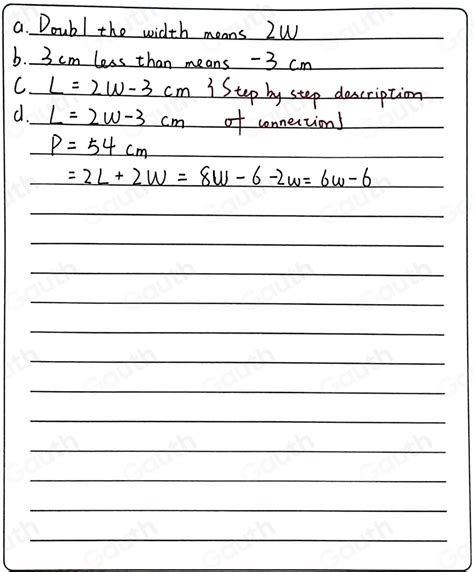 a. Doubl the width means 2W
b. 3 cm less than means -3 cm
C. L = 2W-3 cm {Step by step description
d. L = 2W-3 cm of connection}
P = 54 cm
= 2L + 2W = 8W - 6 -2w = 6w - 6